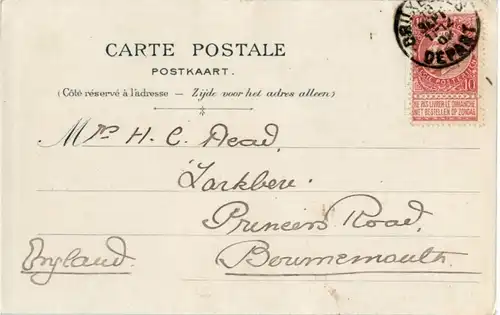 CARTE POSTALE
POSTKAART.
(Côté réservé à l'adresse – Zijde voor het adres alleen)
DEPART
10
NE PAS LIVRER LE DIMANCHE
NIET BESTELLEN OP ZONDAG
Mrs H. C. Dead,
Larkbere.
Princess Road,
Bournemouth.
England.